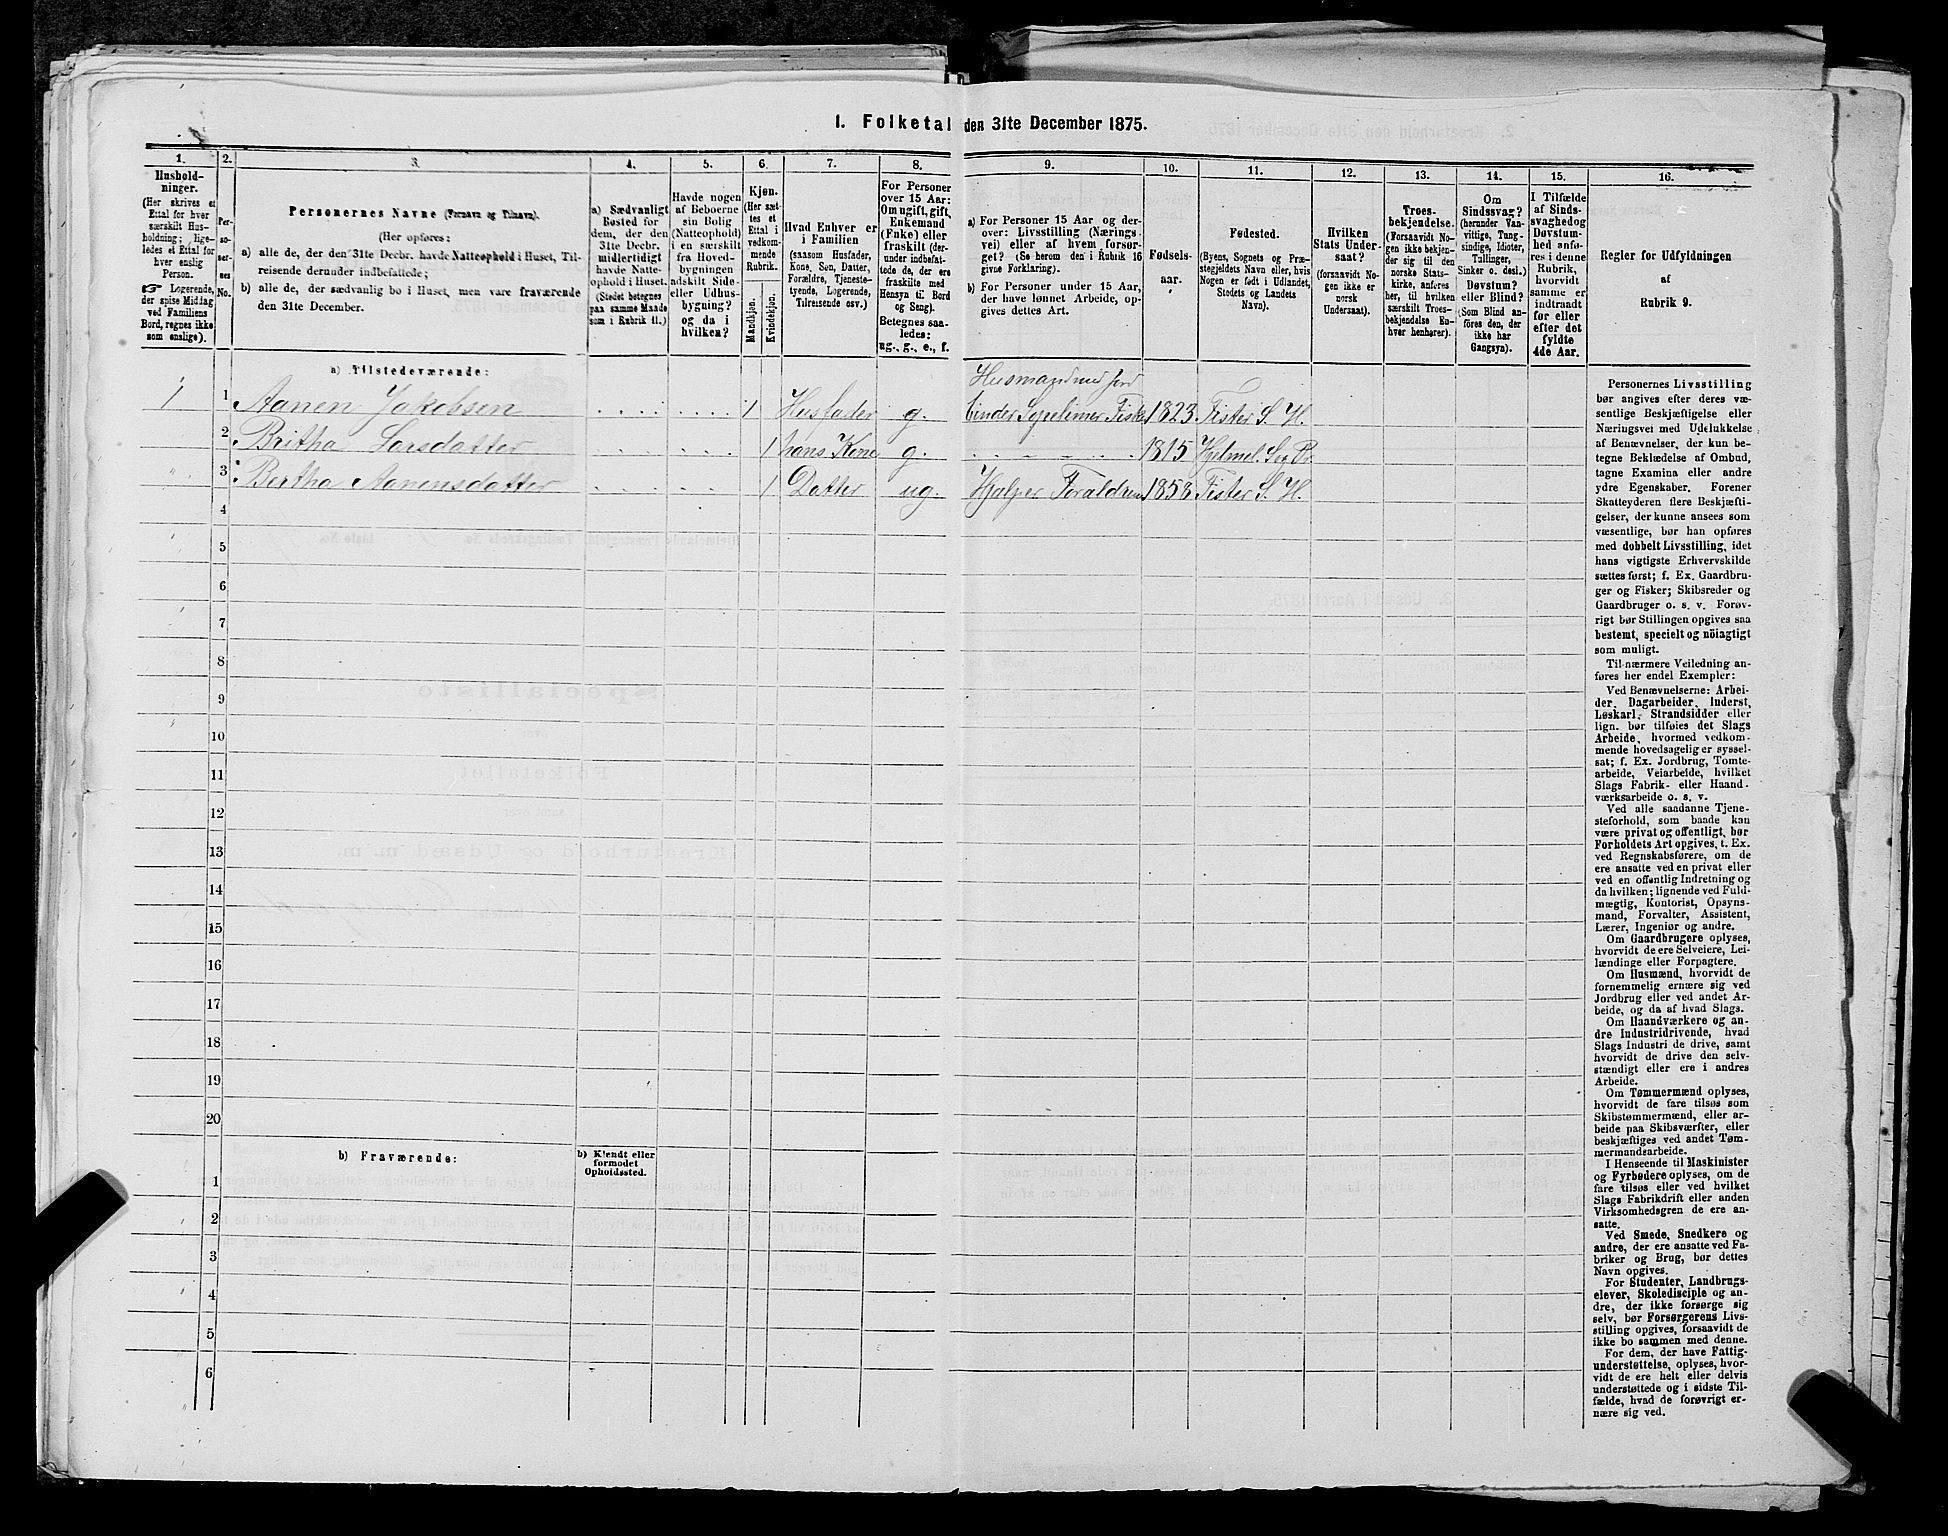 1. Folketal den 31te December 1875.
1. 2. 3. 4. 5. 6. 7. 8. 9. 10. 11. 12. 13. 14. 15. 16.
Hushold-
ninger.
(Her skrives et
Ettal for hver
særskilt Hus-
holdning; lige-
ledes et Ettal for
hver enslig
Person.
☞ Logerende,
der spise Middag
ved Familiens
Bord, regnes ikke
som enslige).
Per-
so-
ner-
nes
No.
Personernes Navne (Fornavn og Tilnavn).
(Her opføres:
a) alle de, der den 31te Decbr. havde Natteophold i Huset, Til-
reisende derunder indbefattede;
b) alle de, der sædvanlig bo i Huset, men vare fraværende
den 31te December.
a) Sædvanligt
Bosted for
dem, der den
31te Decbr.
midlertidigt
havde Natte-
ophold i Huset.
(Stedet betegnes
paa samme Maade
som i Rubrik 11.)
Havde nogen
af Beboerne
sin Bolig
(Natteophold)
i en særskilt
fra Hoved-
bygningen
adskilt Side-
eller Udhus-
bygning?
og da i
hvilken?
Kjøn.
(Her sæt-
tes et
Ettal i
vedkom-
mende
Rubrik.
Mandkjøn.
Kvindekjøn.
Hvad Enhver er
i Familien
(saasom Husfader,
Kone, Søn, Datter,
Forældre, Tjeneste-
tyende, Logerende,
Tilreisende osv.)
For Personer
over 15 Aar:
Om ugift, gift,
Enkemand
(Enke) eller
fraskilt (der-
under indbefat-
tede de, der ere
fraskilte med
Hensyn til Bord
og Seng).
Betegnes saa-
ledes:
ug., g., e., f.
a) For Personer 15 Aar og der-
over: Livsstilling (Nærings-
vei) eller af hvem forsør-
get? (Se herom den i Rubrik 16
givne Forklaring).
b) For Personer under 15 Aar,
der have lønnet Arbeide, op-
gives dettes Art.
Fødsels-
aar.
Fødested.
(Byens, Sognets og Præ-
stegjeldets Navn eller, hvis
Nogen er født i Udlandet,
Stedets og Landets
Navn).
Hvilken
Stats Under-
saat?
(forsaavidt No-
gen ikke er
norsk
Undersaat).
Troes-
bekjendelse.
(Forsaavidt No-
gen ikke bekjen-
der sig til den
norske Stats-
kirke, anføres
her, til hvilken
særskilt Troes-
bekjendelse En-
hver henhører).
Om
Sindssvag?
(herunder Van-
vittige, Tung-
sindige, Idioter,
Tullinger,
Sinker o. desl.)
Døvstum?
eller Blind?
(Som Blind an-
føres den, der
ikke har
Gangsyn).
I Tilfælde
af Sinds-
svaghed og
Døvstum-
hed anfø-
res i denne
Rubrik,
hvorvidt
samme er
indtraadt
før eller
efter det
fyldte
4de Aar.
Regler for Udfyldningen
af
Rubrik 9.
a) Tilstedeværende:
Husmand med Jord
1 1 Aanen Jakobsen 1 Husfader g. 1823 Fister S. H.
2 Britha Larsdatter 1 hans Kone g. 1815
3 Bertha Aanensdatter 1 Datter ug. Hjelper Forældrene 1858 Fister S. H.
4
5
6
7
8
9
10
11
12
13
14
15
16
17
18
19
20
b) Fraværende:
b) Kjendt eller
formodet
Opholdssted.
1
2
3
4
5
6
Personernes Livsstilling
bør angives efter deres væ-
sentlige Beskjæftigelse eller
Næringsvei med Udelukkelse
af Benævnelser, der kun be-
tegne Beklædelse af Ombud,
tagne Examina eller andre
ydre Egenskaber. Forener
Skatteyderen flere Beskjæfti-
gelser, der kunne ansees som
væsentlige, bør han opføres
med dobbelt Livsstilling, idet
hans vigtigste Erhvervskilde
sættes først; f. Ex. Gaardbru-
ger og Fisker; Skibsreder og
Gaardbruger o. s. v. Forøv-
rigt bør Stillingen opgives saa
bestemt, specielt og nöiagtigt
som muligt.
Til nærmere Veiledning an-
føres her endel Exempler:
Ved Benævnelserne: Arbei-
der, Dagarbeider, Inderst,
Løskarl, Strandsidder eller
lign. bør tilføies det Slags
Arbeide, hvormed vedkom-
mende hovedsagelig er syssel-
sat; f. Ex. Jordbrug, Tomte-
arbeide, Veiarbeide, hvilket
Slags Fabrik- eller Haand-
værksarbeide o. s. v.
Ved alle saadanne Tjene-
steforhold, som baade kan
være privat og offentligt, bør
Forholdets Art opgives, t. Ex.
ved Regnskabsførere, om de
ere ansatte ved en privat eller
ved en offentlig Indretning og
da hvilken; lignende ved Fuld-
mægtig, Kontorist, Opsyns-
mand, Forvalter, Assistent,
Lærer, Ingeniør og andre.
Om Gaardbrugere oplyses,
hvorvidt de ere Selveiere, Lei-
lændinge eller Forpagtere.
Om Husmænd, hvorvidt de
fornemmelig ernære sig ved
Jordbrug eller ved andet Ar-
beide, og da af hvad Slags.
Om Haandværkere og an-
dre Industridrivende, hvad
Slags Industri de drive, samt
hvorvidt de drive den selv-
stændigt eller ere i andres
Arbeide.
Om Tømmermænd oplyses,
hvorvidt de fare tilsøs som
Skibstømmermænd, eller ar-
beide paa Skibsværfter, eller
beskjæftiges ved andet Tøm-
mermandsarbeide.
I Henseende til Maskinister
og Fyrbødere oplyses, om de
fare tilsøs eller ved hvilket
Slags Fabrikdrift eller anden
Virksomhedsgren de ere an-
satte.
Ved Smede, Snedkere og
andre, der ere ansatte ved Fa-
briker og Brug, bør dettes
Navn opgives.
For Studenter, Landbrugs-
elever, Skoledisciple og an-
dre, der ikke forsørge sig
selv, bør Forsørgerens Livs-
stilling opgives, forsaavidt de
ikke bo sammen med denne.
For dem, der have Fattig-
understøttelse, oplyses, hvor-
vidt de ere helt eller delvis
understøttede og i sidste Til-
fælde, hvad de forøvrigt er-
nære sig ved.